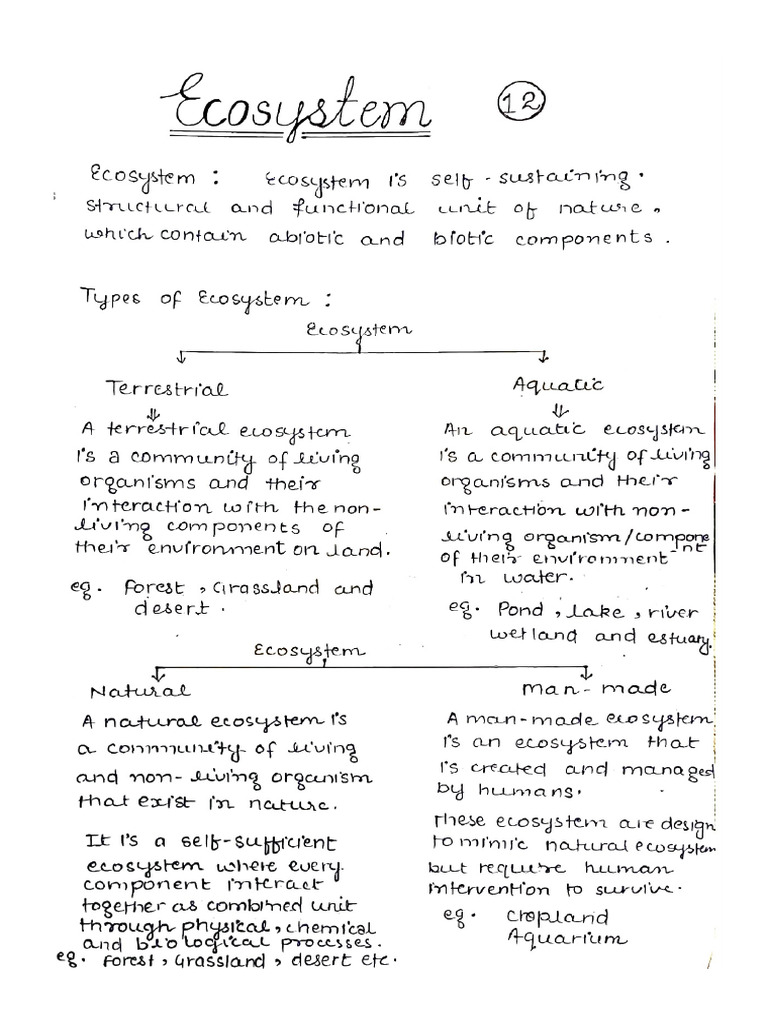 Ecosystem 12
Ecosystem : Ecosystem is self-sustaining.
structural and functional unit of nature,
which contain abiotic and biotic components.
Types of Ecosystem :
Ecosystem
Terrestrial
A terrestrial ecosystem
is a community of living
organisms and their
interaction with the non-
living components of
their environment on land.
eg. Forest, Grassland and
desert.
Aquatic
An aquatic ecosystem
is a community of living
organisms and their
interaction with non-
living organism/compone
-nt
of their environment
in water.
eg. Pond, lake, river
wetland and estuary.
Ecosystem
Natural
A natural ecosystem is
a community of living
and non-living organism
that exist in nature.
It is a self-sufficient
ecosystem where every
component interact
together as combined unit
through physical, chemical
and biological processes.
eg. Forest, Grassland, desert etc.
Man-made
A man-made ecosystem
is an ecosystem that
is created and managed
by humans.
These ecosystem are design
to mimic natural ecosystem
but require human
intervention to survive.
eg. Cropland
Aquarium